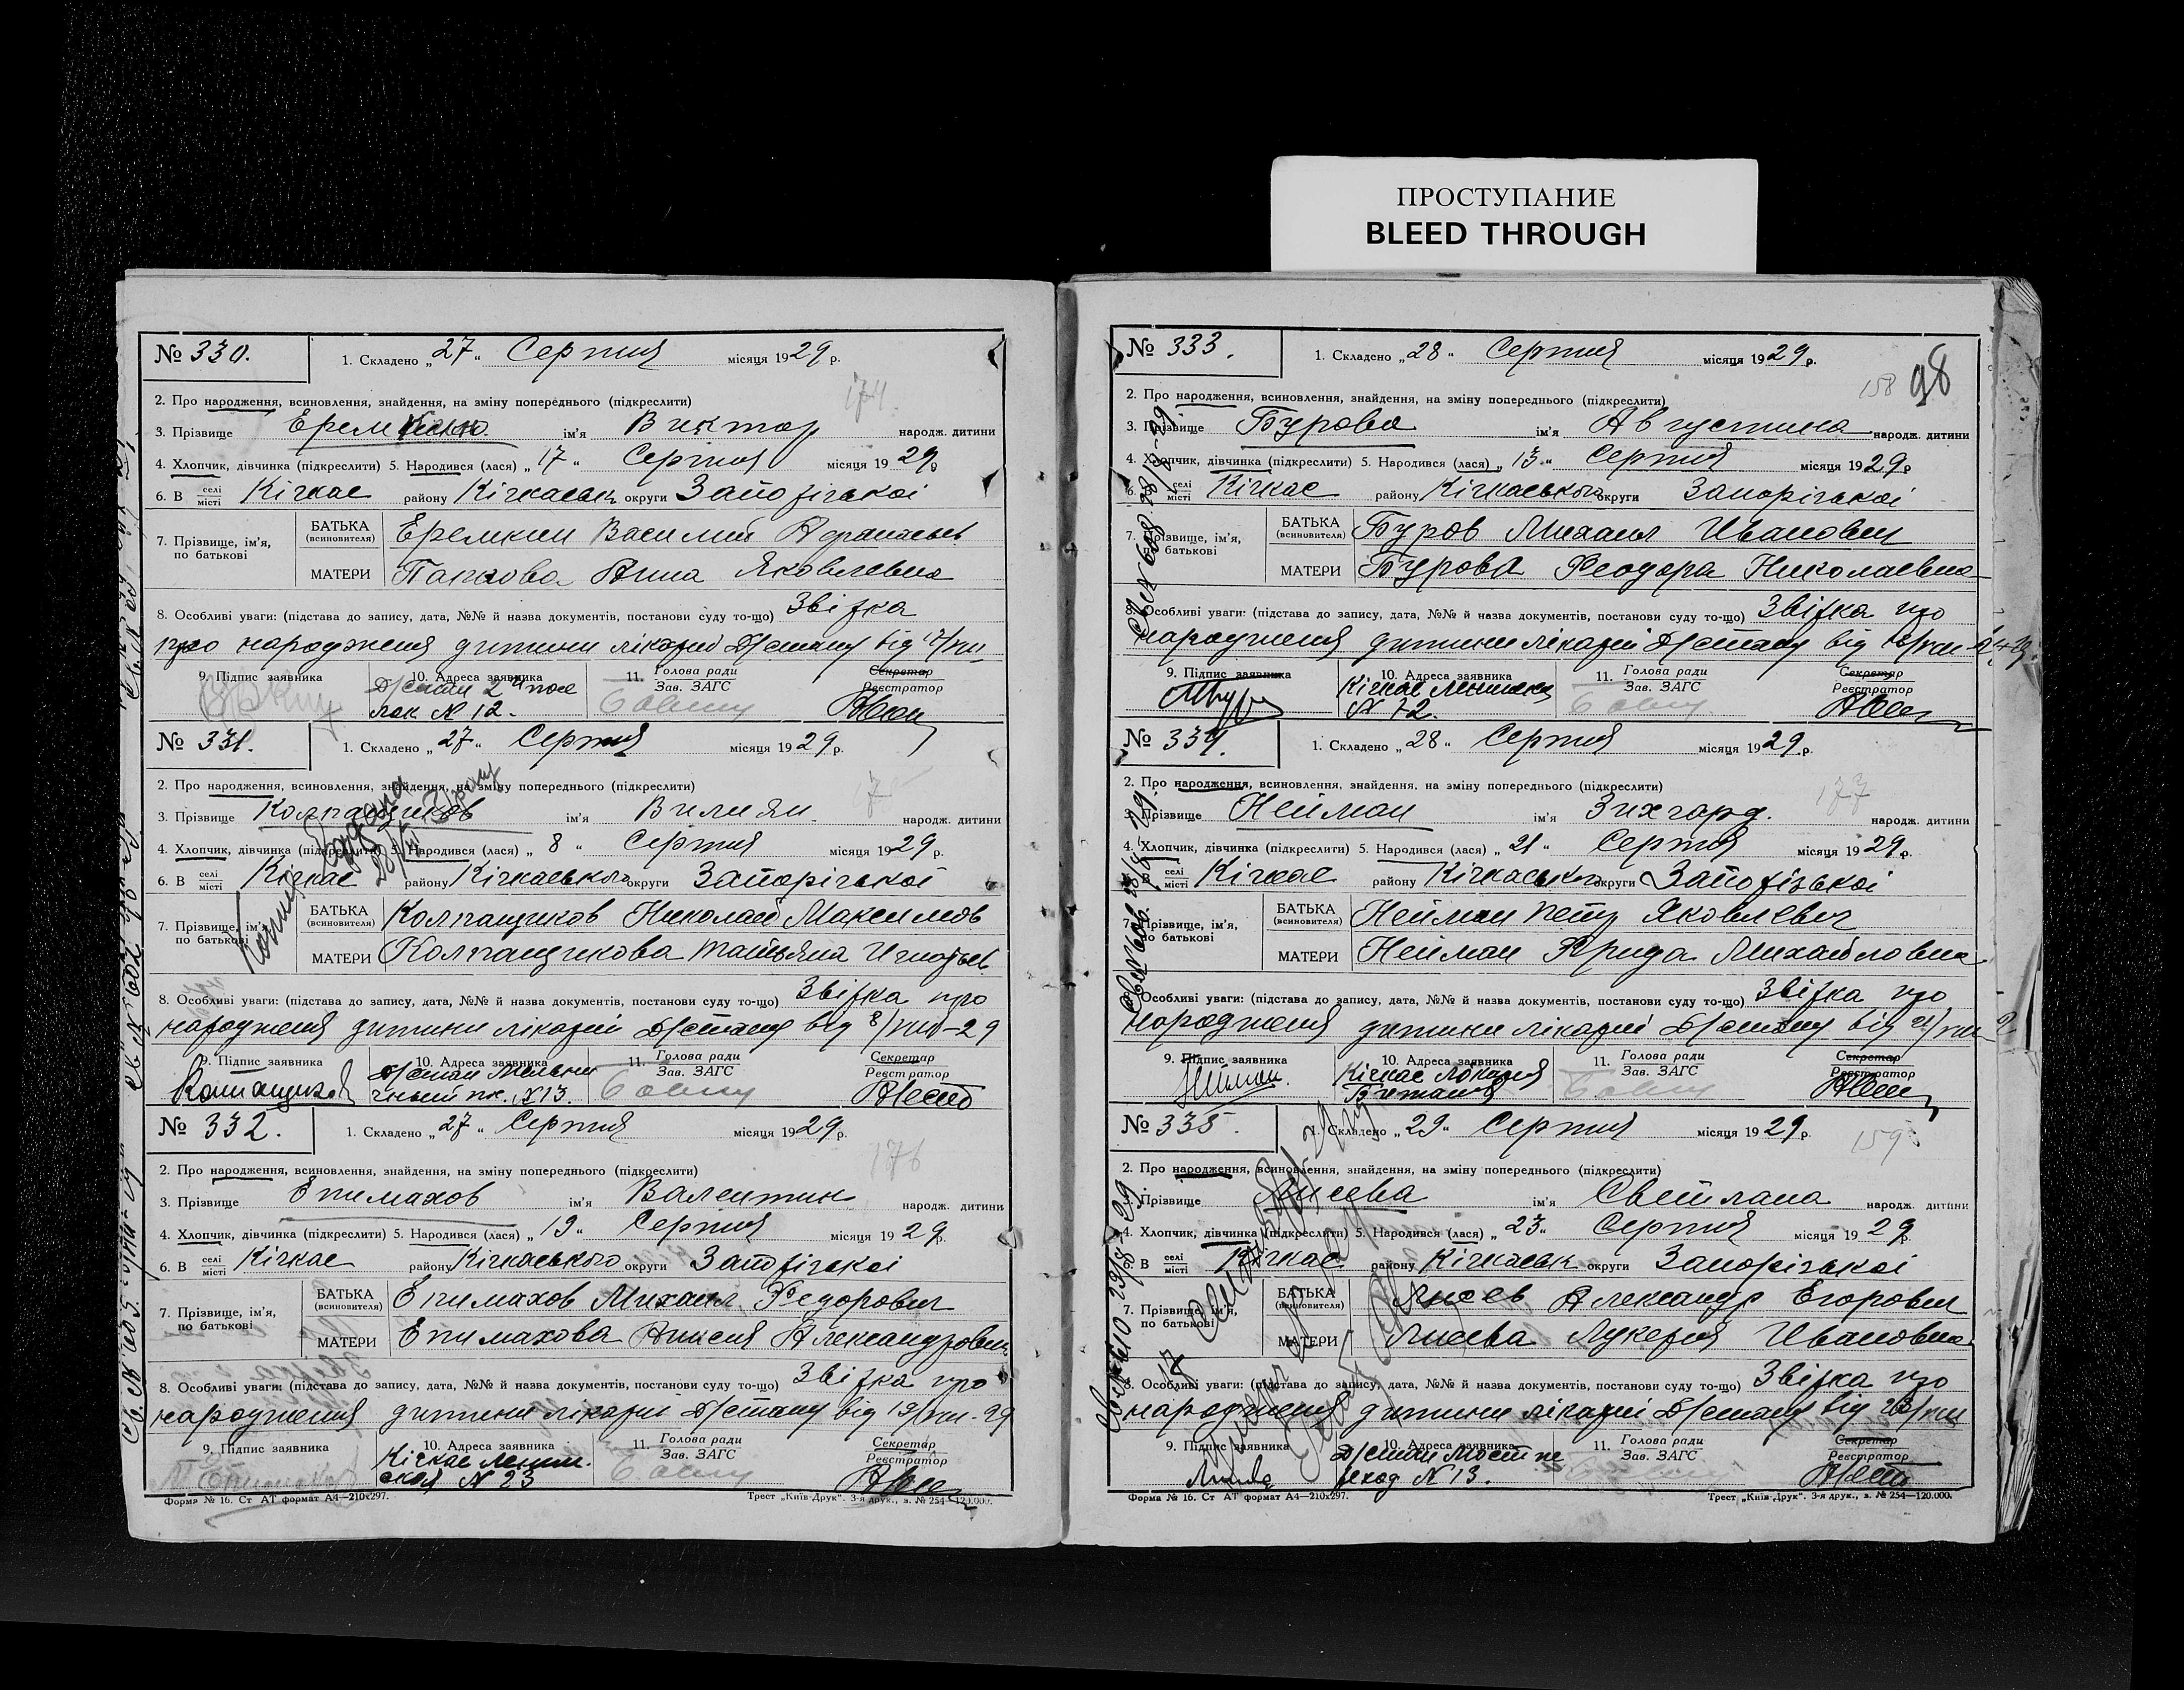 ПРОСТУПАНИЕ
BLEED THROUGH
№ 330. 1. Складено „27“ Серпня місяця 1929 р.
2. Про народження, всиновлення, знайдення, на зміну попереднього (підкреслити)
174
3. Прізвище ім'я Виктор народж. дитини
4. Хлопчик, дівчинка (підкреслити) 5. Народився (лася) „17“ Серпня місяця 1929 р.
6. В селі місті Кічкас району Кічкаськ округи Запорізької
7. Прізвище, ім'я, по батькові
БАТЬКА (всиновителя) Еремкин Василий Афанасьев
МАТЕРИ Анна Яковлевна
8. Особливі уваги: (підстава до запису, дата, №№ й назва документів, постанови суду то-що) Звізка
про народженя дитини лікарні Д/стану від 17/VIII
9. Підпис заявника 10. Адреса заявника 11. Голова ради Зав. ЗАГС Секретар Реєстратор
Д/стан 2й посе
лок N 12.
№ 331. 1. Складено „27“ Серпня місяця 1929 р.
2. Про народження, всиновлення, знайдення, на зміну попереднього (підкреслити)
3. Прізвище Колпащиков ім'я Вилиян народж. дитини
4. Хлопчик, дівчинка (підкреслити) 5. Народився (лася) „8“ Серпня місяця 1929 р.
6. В селі місті Кічкас району Кічкаського округи Запорізької
7. Прізвище, ім'я, по батькові
БАТЬКА (всиновителя) Колпащиков Николай Максимов
МАТЕРИ Колпащикова Татьяна Игнатьев
8. Особливі уваги: (підстава до запису, дата, №№ й назва документів, постанови суду то-що) Звізка про
народженя дитини лікарні Д/стану від 8/VIII-29
9. Підпис заявника 10. Адреса заявника 11. Голова ради Зав. ЗАГС Секретар Реєстратор
N 13.
№ 332. 1. Складено „27“ Серпня місяця 1929 р.
176
2. Про народження, всиновлення, знайдення, на зміну попереднього (підкреслити)
3. Прізвище Епимахов ім'я Валентин народж. дитини
4. Хлопчик, дівчинка (підкреслити) 5. Народився (лася) „19“ Серпня місяця 1929 р.
6. В селі місті Кічкас району Кічкаського округи Запорізької
7. Прізвище, ім'я, по батькові
БАТЬКА (всиновителя) Епимахов Михаил Федорович
МАТЕРИ Епимахова Анисия Александровн
8. Особливі уваги: (підстава до запису, дата, №№ й назва документів, постанови суду то-що) Звізка про
народженя дитини лікарні Д/стану від 19/VIII-29
9. Підпис заявника 10. Адреса заявника 11. Голова ради Зав. ЗАГС Секретар Реєстратор
Кічкас Ленин.
ской N 23
Форма № 16. Ст АТ формат А4—210х297. Трест „Київ-Друк“. 3-я друк., з. № 254—120.000.
№ 333. 1. Складено „28“ Серпня місяця 1929 р.
158 98
2. Про народження, всиновлення, знайдення, на зміну попереднього (підкреслити)
3. Прізвище Бурова ім'я Августина народж. дитини
4. Хлопчик, дівчинка (підкреслити) 5. Народився (лася) „13“ Серпня місяця 1929 р
6. В селі місті Кічкас району Кічкаського округи Запорізької
7. Прізвище, ім'я, по батькові
БАТЬКА (всиновителя) Буров Михаил Иванович
МАТЕРИ Бурова Феодора Николаевна
8. Особливі уваги: (підстава до запису, дата, №№ й назва документів, постанови суду то-що) Звізка про
народженя дитини лікарні Д/стану від
9. Підпис заявника 10. Адреса заявника 11. Голова ради Зав. ЗАГС Секретар Реєстратор
Кічкас
N 72.
№ 334. 1. Складено „28“ Серпня місяця 1929 р.
2. Про народження, всиновлення, знайдення, на зміну попереднього (підкреслити)
177
3. Прізвище Нейман ім'я Зихгард. народж. дитини
4. Хлопчик, дівчинка (підкреслити) 5. Народився (лася) „21“ Серпня місяця 1929 р.
6. В селі місті Кічкас району Кічкаського округи Запорізької
7. Прізвище, ім'я, по батькові
БАТЬКА (всиновителя) Нейман Петр Яковлевич
МАТЕРИ Нейман Фрида Михайловна
8. Особливі уваги: (підстава до запису, дата, №№ й назва документів, постанови суду то-що) Звізка про
народженя дитини лікарні Д/стану від 21/VIII
9. Підпис заявника 10. Адреса заявника 11. Голова ради Зав. ЗАГС Секретар Реєстратор
Нейман. Кічкас
№ 335. 1. Складено „29“ Серпня місяця 1929 р.
159
2. Про народження, всиновлення, знайдення, на зміну попереднього (підкреслити)
3. Прізвище Лисева ім'я Светлана народж. дитини
4. Хлопчик, дівчинка (підкреслити) 5. Народився (лася) „23“ Серпня місяця 1929 р.
6. В селі місті Кічкас району Кічкаськ округи Запорізької
7. Прізвище, ім'я, по батькові
БАТЬКА (всиновителя) Лисев Александр Егорович
МАТЕРИ Лисева Лукерия Ивановна
8. Особливі уваги: (підстава до запису, дата, №№ й назва документів, постанови суду то-що) Звізка про
народженя дитини лікарні Д/стану від 23/VIII
9. Підпис заявника 10. Адреса заявника 11. Голова ради Зав. ЗАГС Секретар Реєстратор
N 13.
Форма № 16. Ст АТ формат А4—210х297. Трест „Київ-Друк“. 3-я друк., з. № 254—120.000.